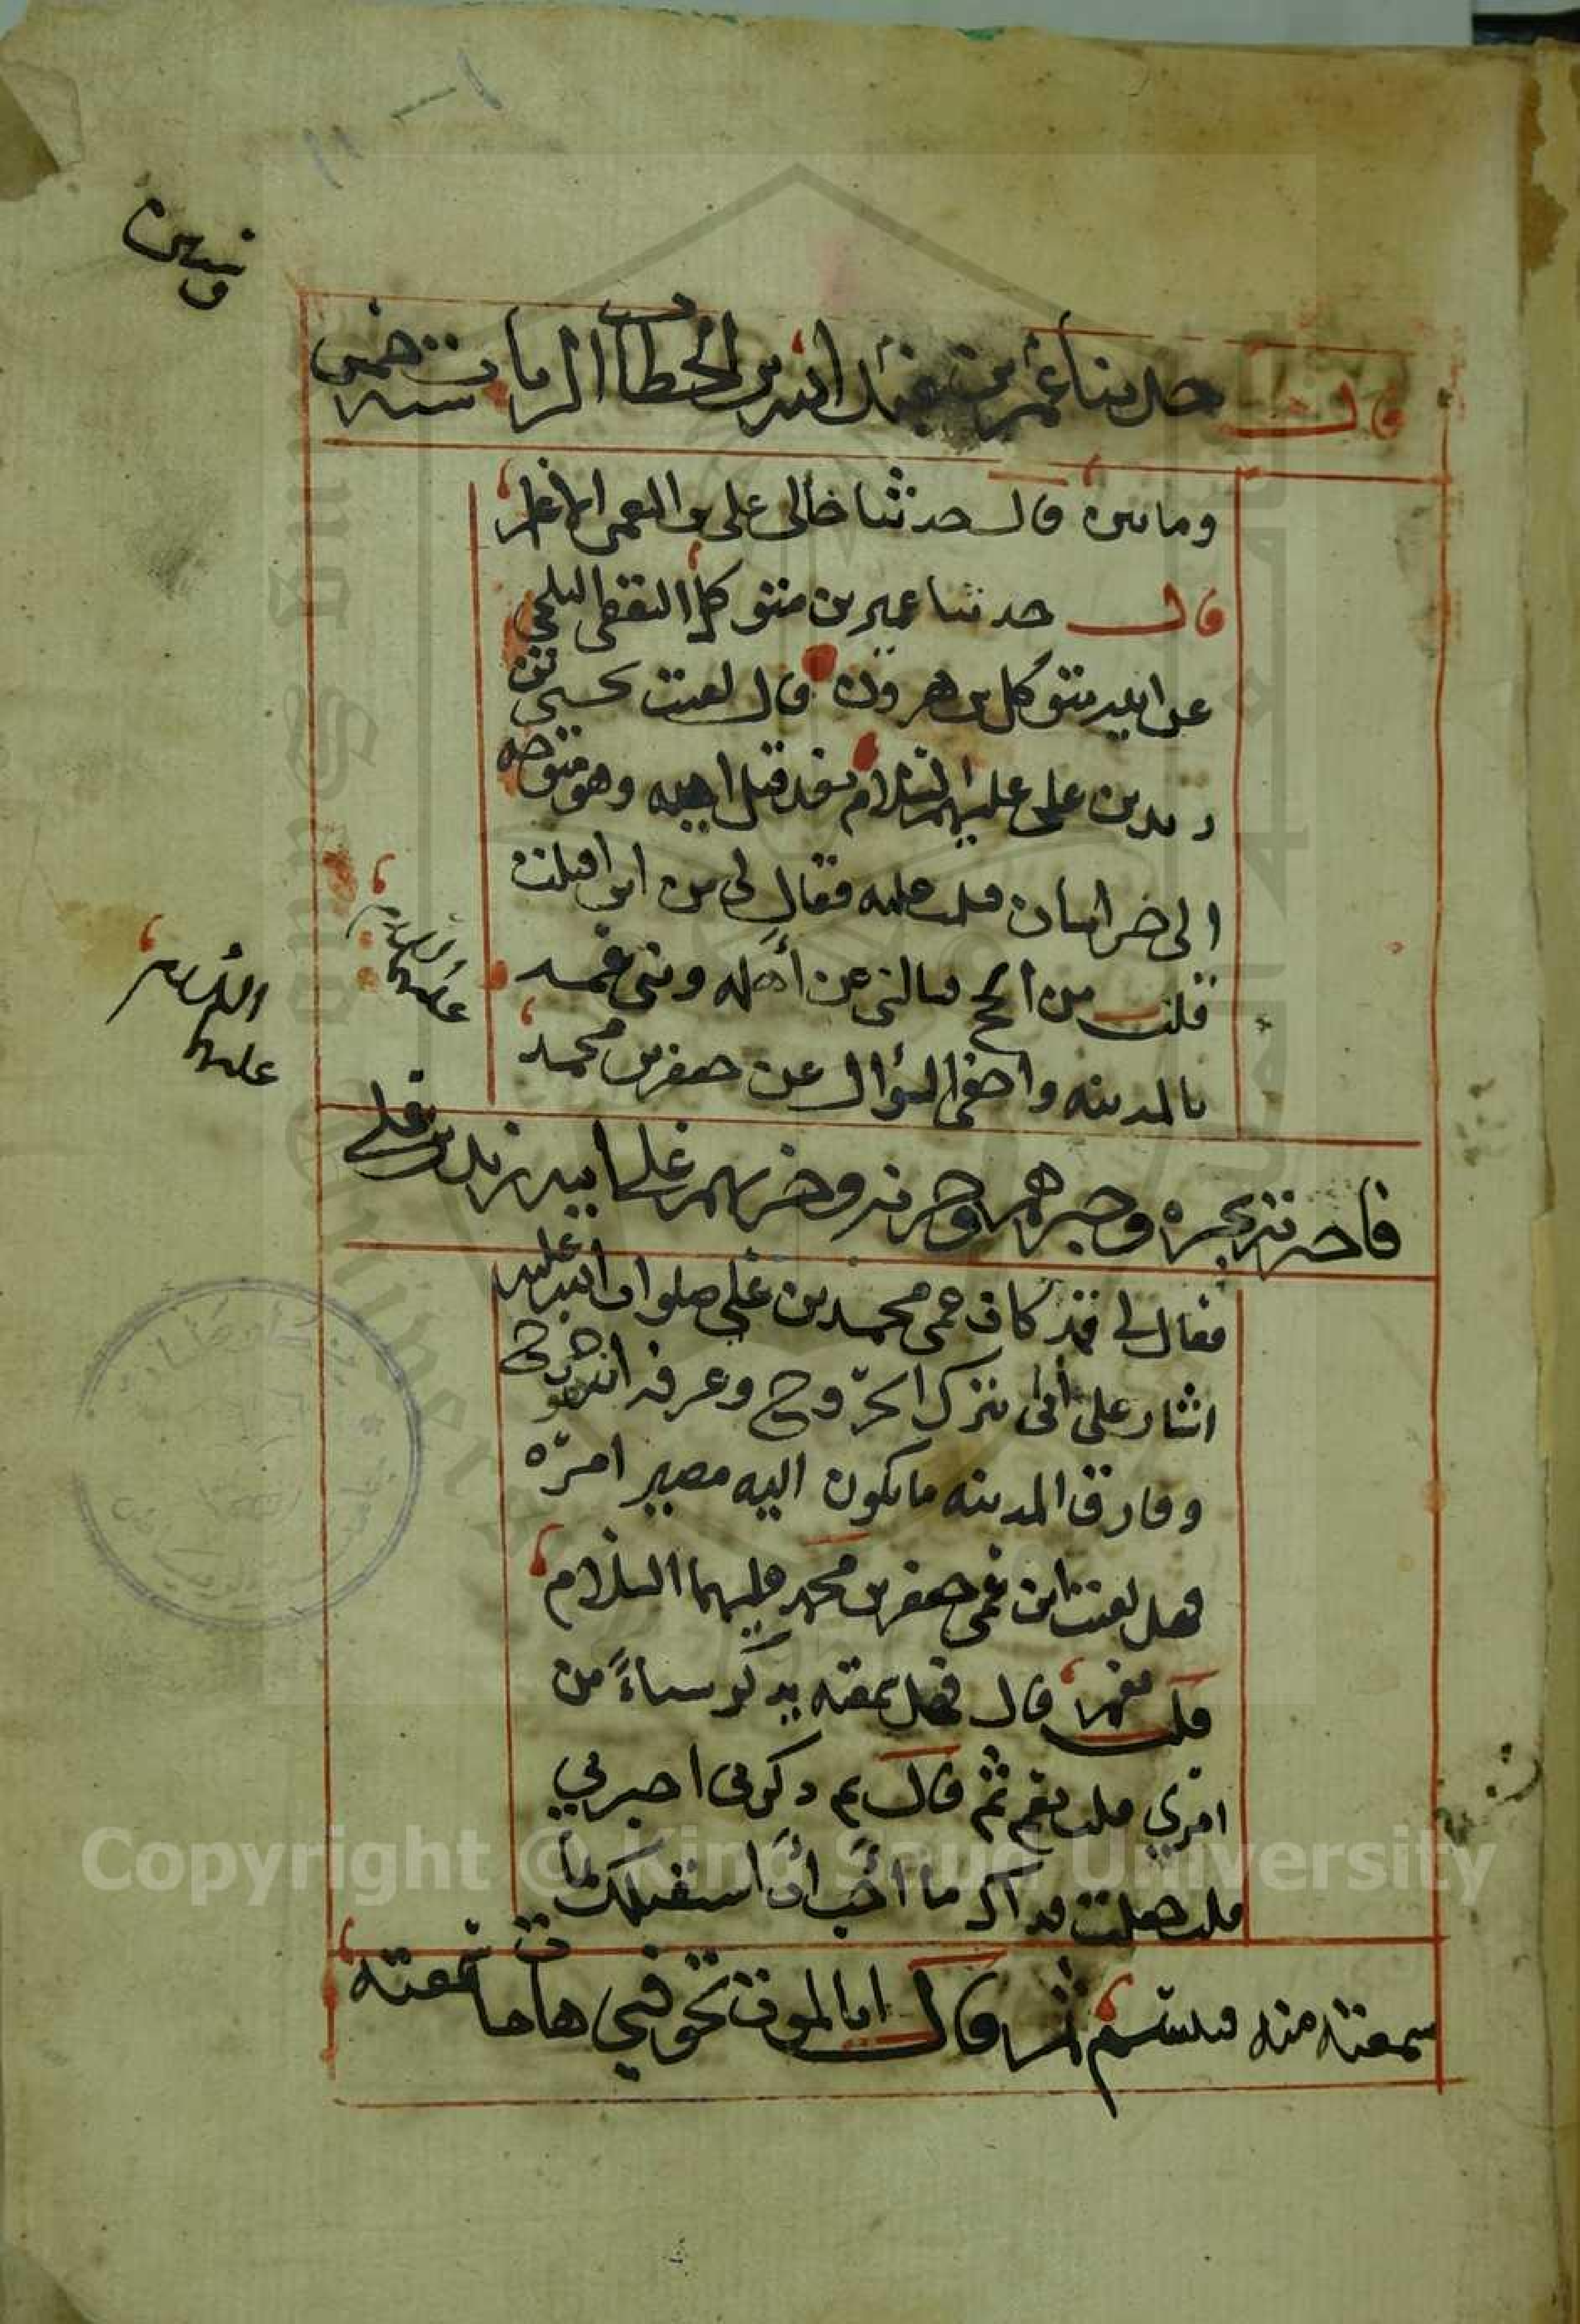 قال حدثنا عمر بن عبد الله بن الخطاب الزيات سنه خمس
وستين
ومائتين قال حدثنا خالي علي بن النعمن الاعلم
قال حدثنا عمير بن متوكل الثقفي البلخي
عن ابيه متوكل بن هرون قال لقيت يحيى بن
زيد بن علي عليهم السلام بعد قتل ابيه وهو متوجه
الى خراسان فسلمت عليه فقال لي من اين اقبلت
قلت من الحج فسالني عن أهله وبني عمه
بالمدينه واحفى السؤال عن جعفر بن محمد
عليهما السلام
عليه السلام
فاخبرته بخبره وخبرهم وحزنهم على ابيه زيد بن علي
فقال لي قد كان عمي محمد بن علي صلوات الله عليه
اشار على أبي بترك الخروج وعرفه ان هو خرج
وفارق المدينه ما يكون اليه مصير امره
فهل لقيت ابن عمي جعفر بن محمد عليهما السلام
قلت نعم قال فهل سمعته يذكر شياءً من
امري قلت نعم ثم قال بم ذكرني اخبرني
قلت جعلت فداك ما أحب ان استقبلك بما
سمعته منه فـ ثم قال ابالموت تخوفني هات ما سمعته
Copyright © King Saud University